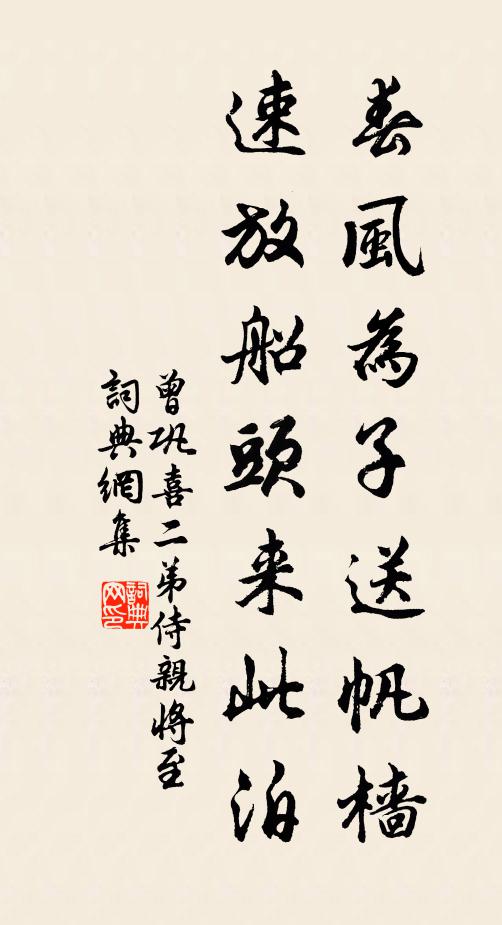 春風為子送帆檣
速放船頭来此泊
曾巩喜二弟侍親將至
詞典網集
詞典網印